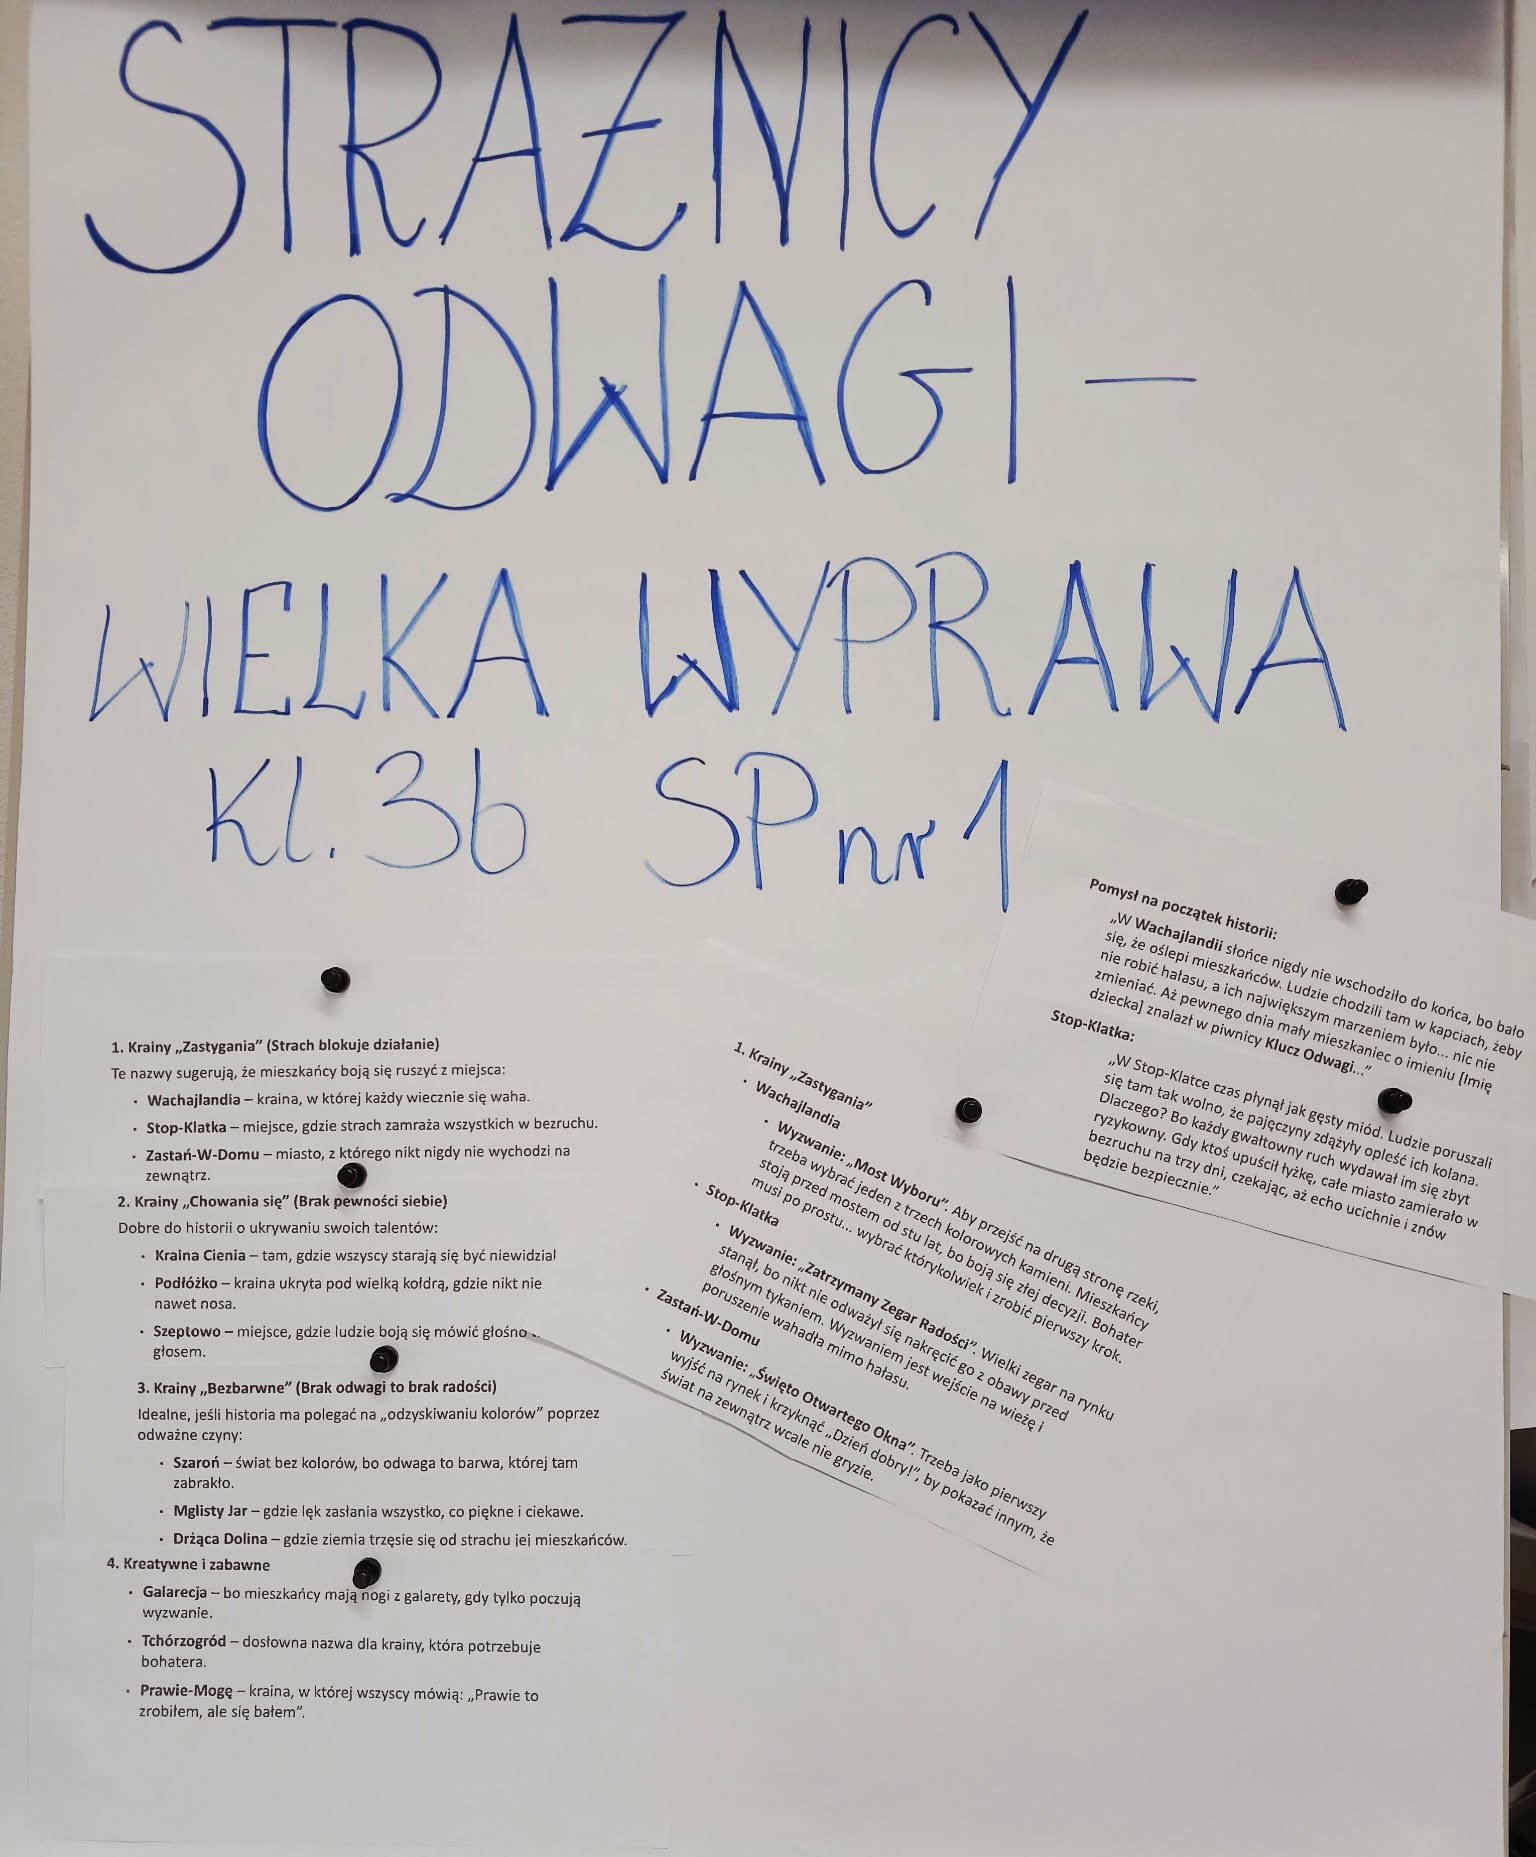 STRAŻNICY
ODWAGI —
WIELKA WYPRAWA
Kl. 3b SP nr 1
Pomysł na początek historii:
„W Wachajlandii słońce nigdy nie wschodziło do końca, bo bało
się, że oślepi mieszkańców. Ludzie chodzili tam w kapciach, żeby
nie robić hałasu, a ich największym marzeniem było... nic nie
zmieniać. Aż pewnego dnia mały mieszkaniec o imieniu [Imię
dziecka] znalazł w piwnicy Klucz Odwagi...”
Stop-Klatka:
„W Stop-Klatce czas płynął jak gęsty miód. Ludzie poruszali
się tam tak wolno, że pajęczyny zdążyły opleść ich kolana.
Dlaczego? Bo każdy gwałtowny ruch wydawał im się zbyt
ryzykowny. Gdy ktoś upuścił łyżkę, całe miasto zamierało w
bezruchu na trzy dni, czekając, aż echo ucichnie i znów
będzie bezpiecznie.”
1. Krainy „Zastygania” (Strach blokuje działanie)
Te nazwy sugerują, że mieszkańcy boją się ruszyć z miejsca:
• Wachajlandia – kraina, w której każdy wiecznie się waha.
• Stop-Klatka – miejsce, gdzie strach zamraża wszystkich w bezruchu.
• Zastań-W-Domu – miasto, z którego nikt nigdy nie wychodzi na
zewnątrz.
2. Krainy „Chowania się” (Brak pewności siebie)
Dobre do historii o ukrywaniu swoich talentów:
• Kraina Cienia – tam, gdzie wszyscy starają się być niewidzial
• Podłóżko – kraina ukryta pod wielką kołdrą, gdzie nikt nie
nawet nosa.
• Szeptowo – miejsce, gdzie ludzie boją się mówić głośno
głosem.
3. Krainy „Bezbarwne” (Brak odwagi to brak radości)
Idealne, jeśli historia ma polegać na „odzyskiwaniu kolorów” poprzez
odważne czyny:
• Szaroń – świat bez kolorów, bo odwaga to barwa, której tam
zabrakło.
• Mglisty Jar – gdzie lęk zasłania wszystko, co piękne i ciekawe.
• Drżąca Dolina – gdzie ziemia trzęsie się od strachu jej mieszkańców.
4. Kreatywne i zabawne
• Galarecja – bo mieszkańcy mają nogi z galarety, gdy tylko poczują
wyzwanie.
• Tchórzogród – dosłowna nazwa dla krainy, która potrzebuje
bohatera.
• Prawie-Mogę – kraina, w której wszyscy mówią: „Prawie to
zrobiłem, ale się bałem”.
1. Krainy „Zastygania”
• Wachajlandia
• Wyzwanie: „Most Wyboru”. Aby przejść na drugą stronę rzeki,
trzeba wybrać jeden z trzech kolorowych kamieni. Mieszkańcy
stoją przed mostem od stu lat, bo boją się złej decyzji. Bohater
musi po prostu... wybrać którykolwiek i zrobić pierwszy krok.
• Stop-Klatka
• Wyzwanie: „Zatrzymany Zegar Radości”. Wielki zegar na rynku
stanął, bo nikt nie odważył się nakręcić go z obawy przed
głośnym tykaniem. Wyzwaniem jest wejście na wieżę i
poruszenie wahadła mimo hałasu.
• Zastań-W-Domu
• Wyzwanie: „Święto Otwartego Okna”. Trzeba jako pierwszy
wyjść na rynek i krzyknąć „Dzień dobry!”, by pokazać innym, że
świat na zewnątrz wcale nie gryzie.